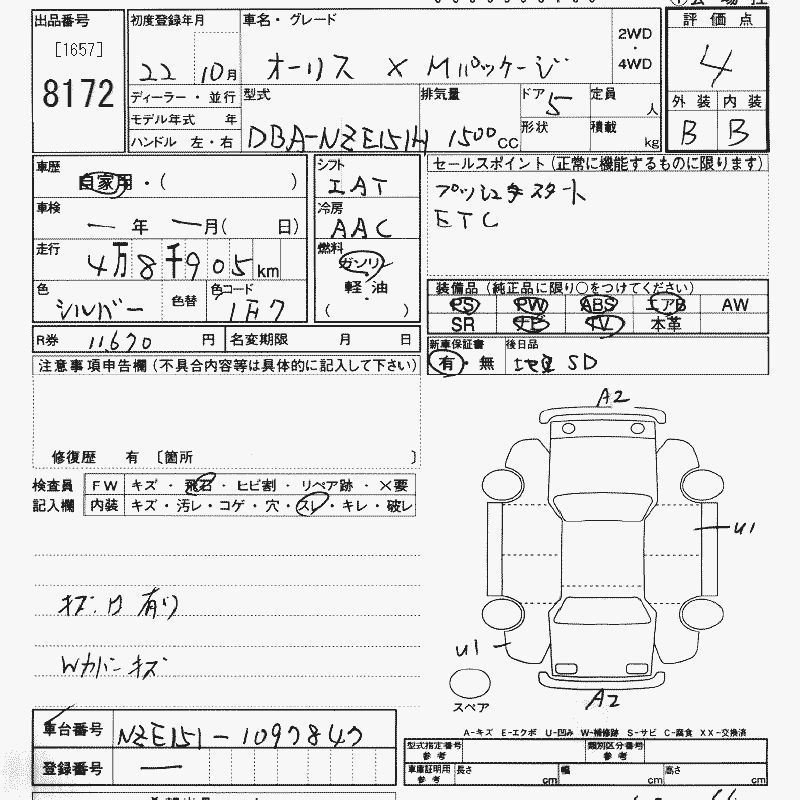 出品番号
[1657]
8172
初度登録年月
22 10月
車名・グレード
オーリス X Mパッケージ
2WD
・
4WD
評価点
4
外装 内装
B B
ディーラー・並行
モデル年式 年
ハンドル 左・右
型式
DBA-NZE151H
排気量
1500cc
ドア 5
形状
定員 人
積載 kg
車歴
自家用・( )
車検
一 年 一月( 日)
走行
4万8千905km
色
シルバー
色替
色コード
1F7
シフト
IAT
冷房
AAC
燃料
ガソリン
軽・油
( )
セールスポイント(正常に機能するものに限ります)
プッシュスタート
ETC
装備品(純正品に限り○をつけてください)
PS PW ABS エアB AW
SR ナビ TV 本革
新車保証書
有・無
後日品
地図 SD
R券 11,670 円
名変期限 月 日
注意事項申告欄(不具合内容等は具体的に記入して下さい)
修復歴 有〔箇所 〕
検査員
記入欄
FW キズ・飛石・ヒビ割・リペア跡・×要
内装 キズ・汚レ・コゲ・穴・スレ・キレ・破レ
キズ・凹 有り
Wカバーキズ
A2
U1
U1
A2
スペア
A-キズ E-エクボ U-凹み W-補修跡 S-サビ C-腐食 XX-交換済
車台番号
NZE151-1097847
登録番号
一
型式指定番号
参考
類別区分番号
参考
車庫証明用
参考
長さ cm
幅 cm
高さ cm